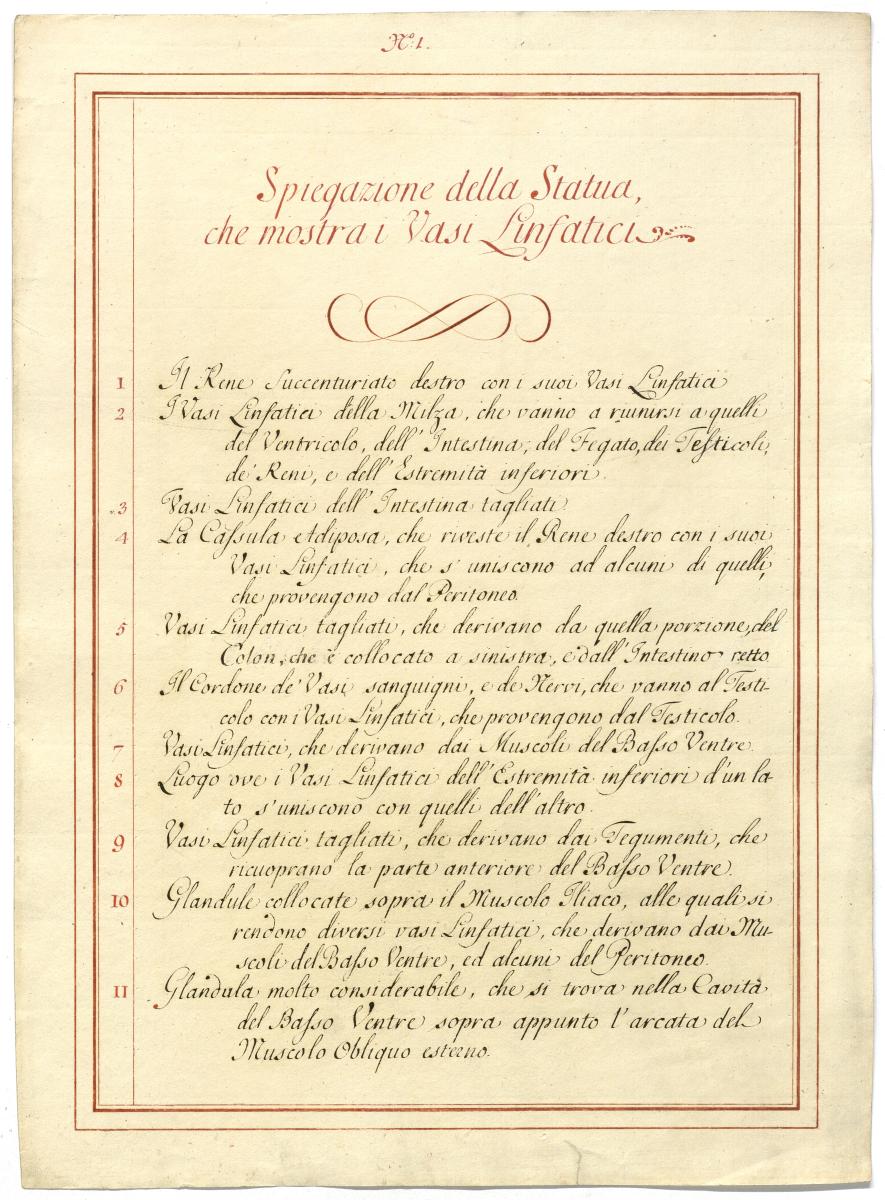 N.º 1.
Spiegazione della Statua,
che mostra i Vasi Linfatici
1 Il Rene Succenturiato destro con i suoi Vasi Linfatici
2 I Vasi Linfatici della Milza, che vanno a riunirsi a quelli
del Ventricolo, dell' Intestina, del Fegato, dei Testicoli,
de' Reni, e dell' Estremità inferiori.
3 Vasi Linfatici dell' Intestina tagliati.
4 La Cassula Adiposa, che riveste il Rene destro con i suoi
Vasi Linfatici, che s' uniscono ad alcuni di quelli,
che provengono dal Peritoneo.
5 Vasi Linfatici tagliati, che derivano da quella porzione, del
Colon, che è collocato a sinistra, e dall' Intestino retto
6 Il Cordone de' Vasi sanguigni, e de Nervi, che vanno al Testi-
colo con i Vasi Linfatici, che provengono dal Testicolo.
7 Vasi Linfatici, che derivano dai Muscoli del Basso Ventre.
8 Luogo ove i Vasi Linfatici dell' Estremità inferiori d'un la-
to s'uniscono con quelli dell'altro.
9 Vasi Linfatici tagliati, che derivano dai Tegumenti, che
ricuoprano la parte anteriore del Basso Ventre.
10 Glandule collocate sopra il Muscolo Iliaco, alle quali si
rendono diversi vasi Linfatici, che derivano dai Mu-
scoli del Basso Ventre, ed alcuni del Peritoneo.
11 Glandula molto considerabile, che si trova nella Cavità
del Basso Ventre sopra appunto l'arcata del
Muscolo Obliquo esterno.